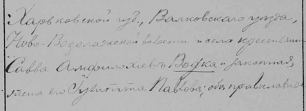 Харьковской губ., Валковского уезда,
Ново-Водолажской волости и села крестьянин
Савва Амфилохиев Водка и законная
жена его Иулиитта Павлова; оба православн